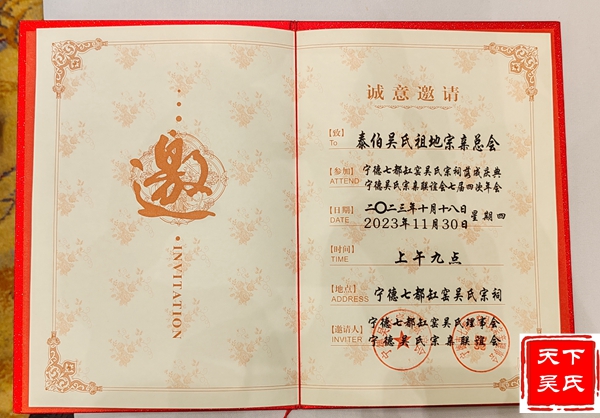 邀
INVITATION
诚意邀请
【致】 泰伯吴氏祖地宗亲总会
To
【参加】 宁德七都缸窑吴氏宗祠落成庆典
ATTEND 宁德吴氏宗亲联谊会七届四次年会
【日期】 二〇二三年十月十八日 星期四
DATE 2023年11月30日
【时间】 上午九点
TIME
【地点】 宁德七都缸窑吴氏宗祠
ADDRESS
【邀请人】 宁德七都缸窑吴氏理事会
INVITER 宁德吴氏宗亲联谊会
天下
吴氏